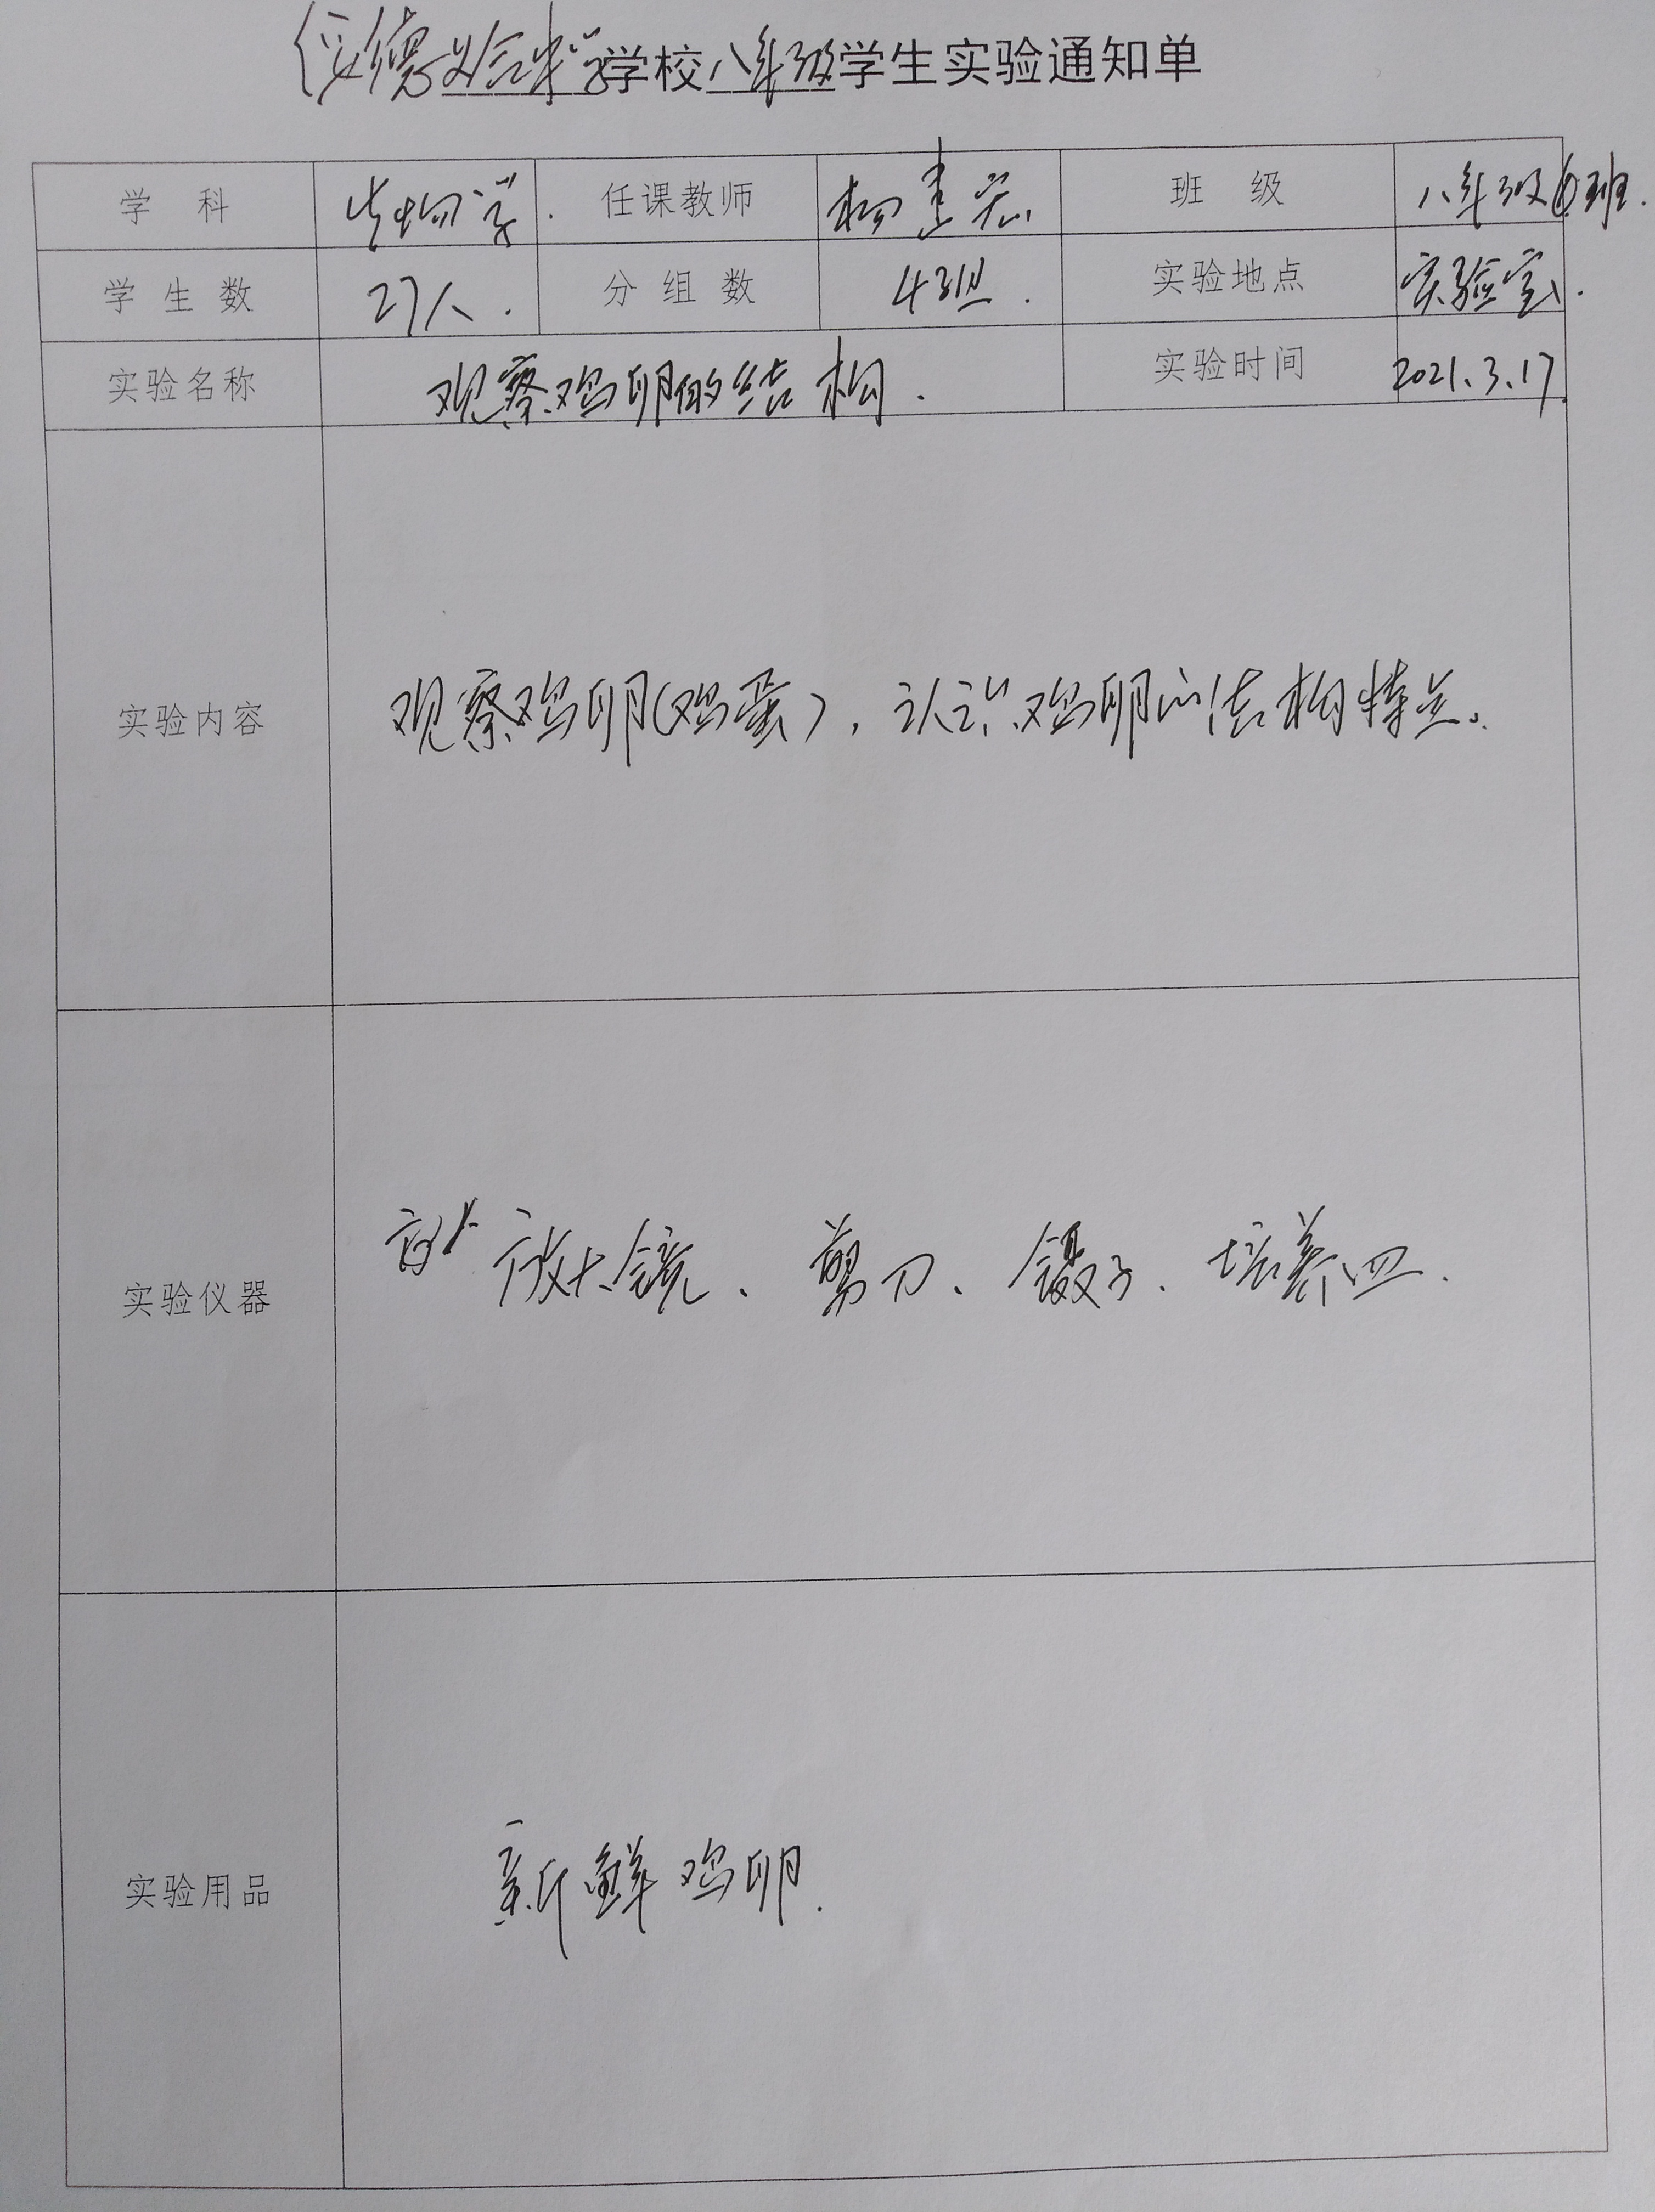 学校八年级学生实验通知单
学 科 生物学. 任课教师 杨建宏 班 级 八年级⑥班.
学 生 数 27人. 分 组 数 4组. 实验地点 实验室.
实验名称 观察鸡卵的结构. 实验时间 2021.3.17.
实验内容 观察鸡卵(鸡蛋),认识鸡卵的结构特点。
实验仪器 放大镜、剪刀、镊子、培养皿.
实验用品 新鲜鸡卵.